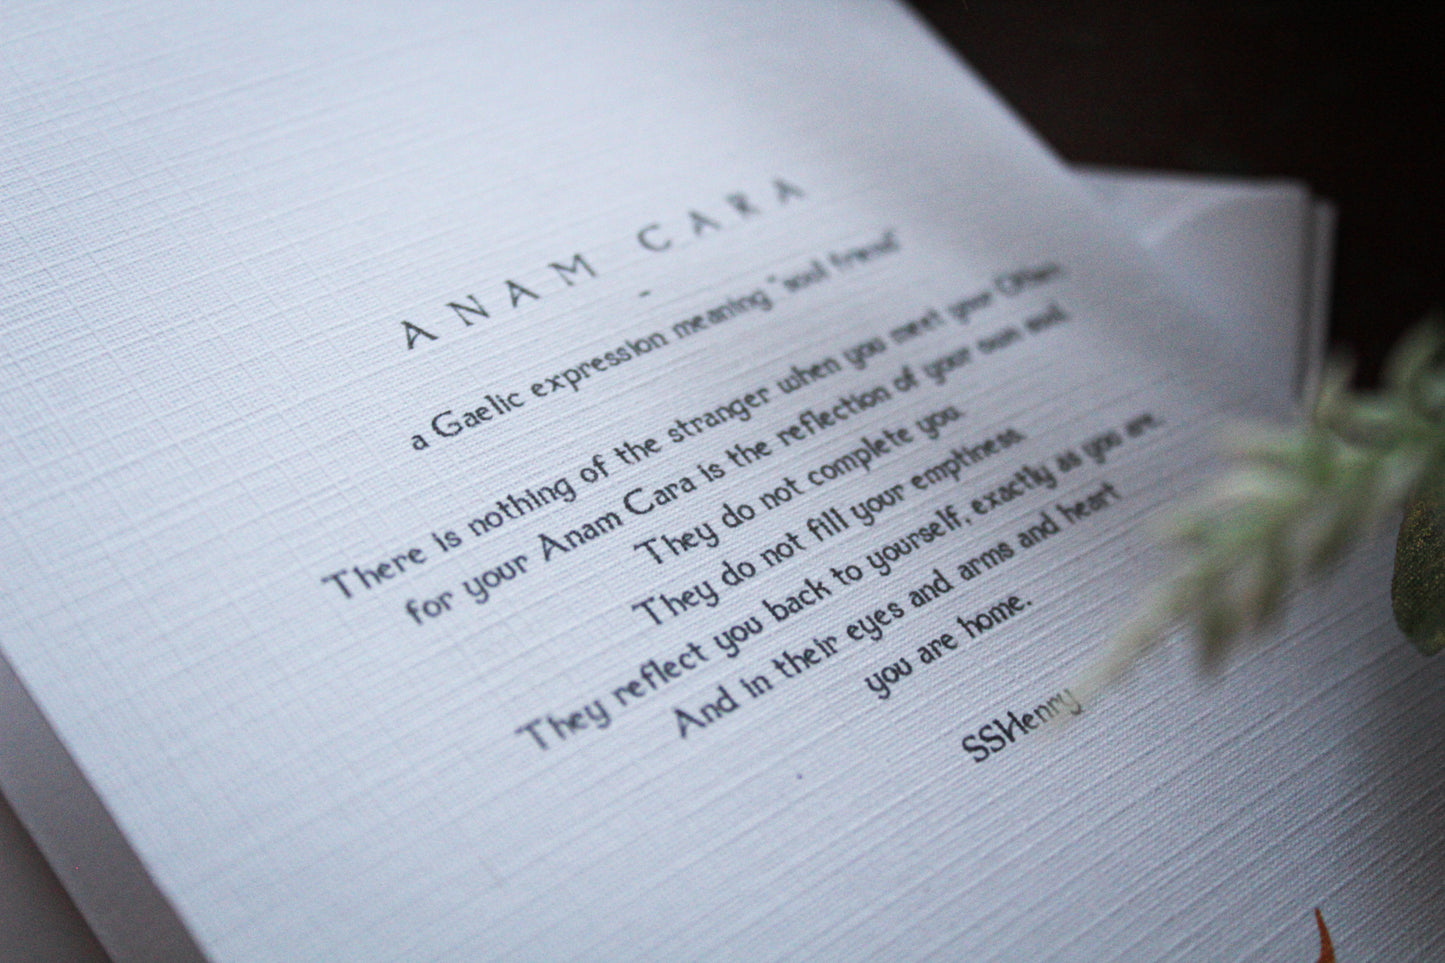 ANAM CARA
-
a Gaelic expression meaning "soul friend"
There is nothing of the stranger when you meet your
for your Anam Cara is the reflection of your own soul.
They do not complete you.
They do not fill your emptiness.
They reflect you back to yourself, exactly as you are.
And in their eyes and arms and heart
you are home.
SSHenry